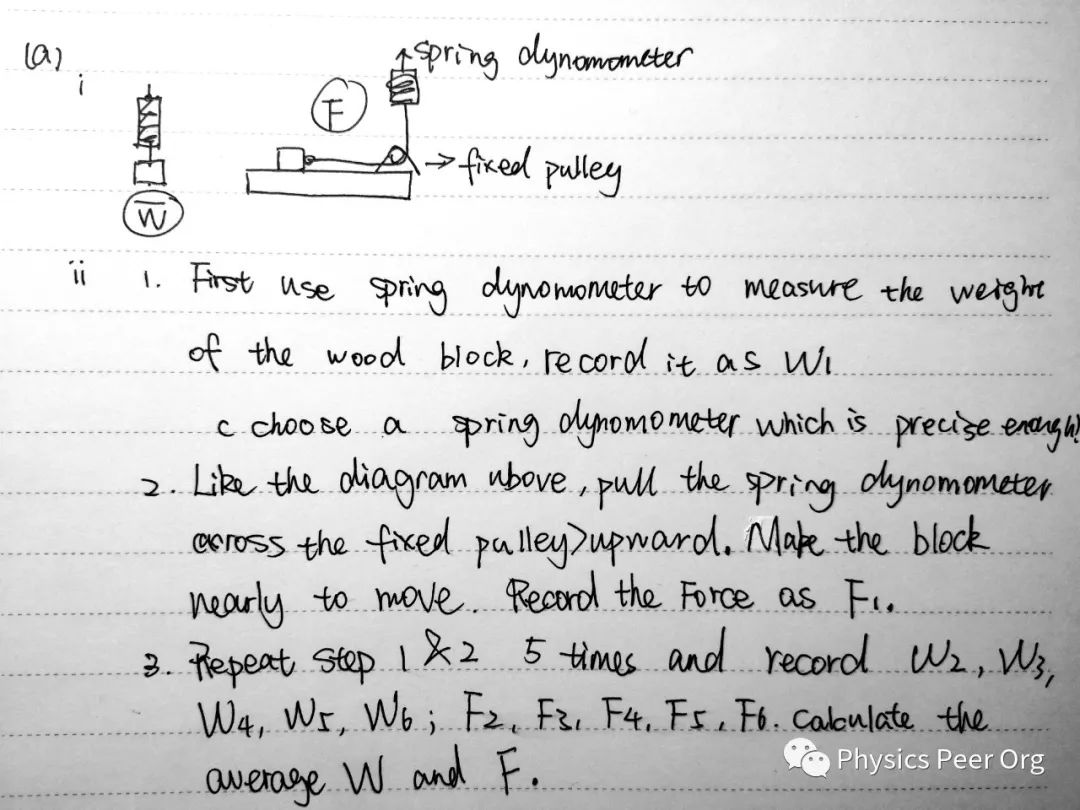 (a)
i
spring dynomometer
F
fixed pulley
W
ii 1. First use spring dynomometer to measure the weight
of the wood block, record it as W1
c choose a spring dynomometer which is precise enough)
2. Like the diagram above, pull the spring dynomometer
across the fixed pulley>upward. Make the block
nearly to move. Record the Force as F1.
3. Repeat step 1 & 2 5 times and record W2, W3,
W4, W5, W6; F2, F3, F4, F5, F6. Calculate the
average W and F.
Physics Peer Org